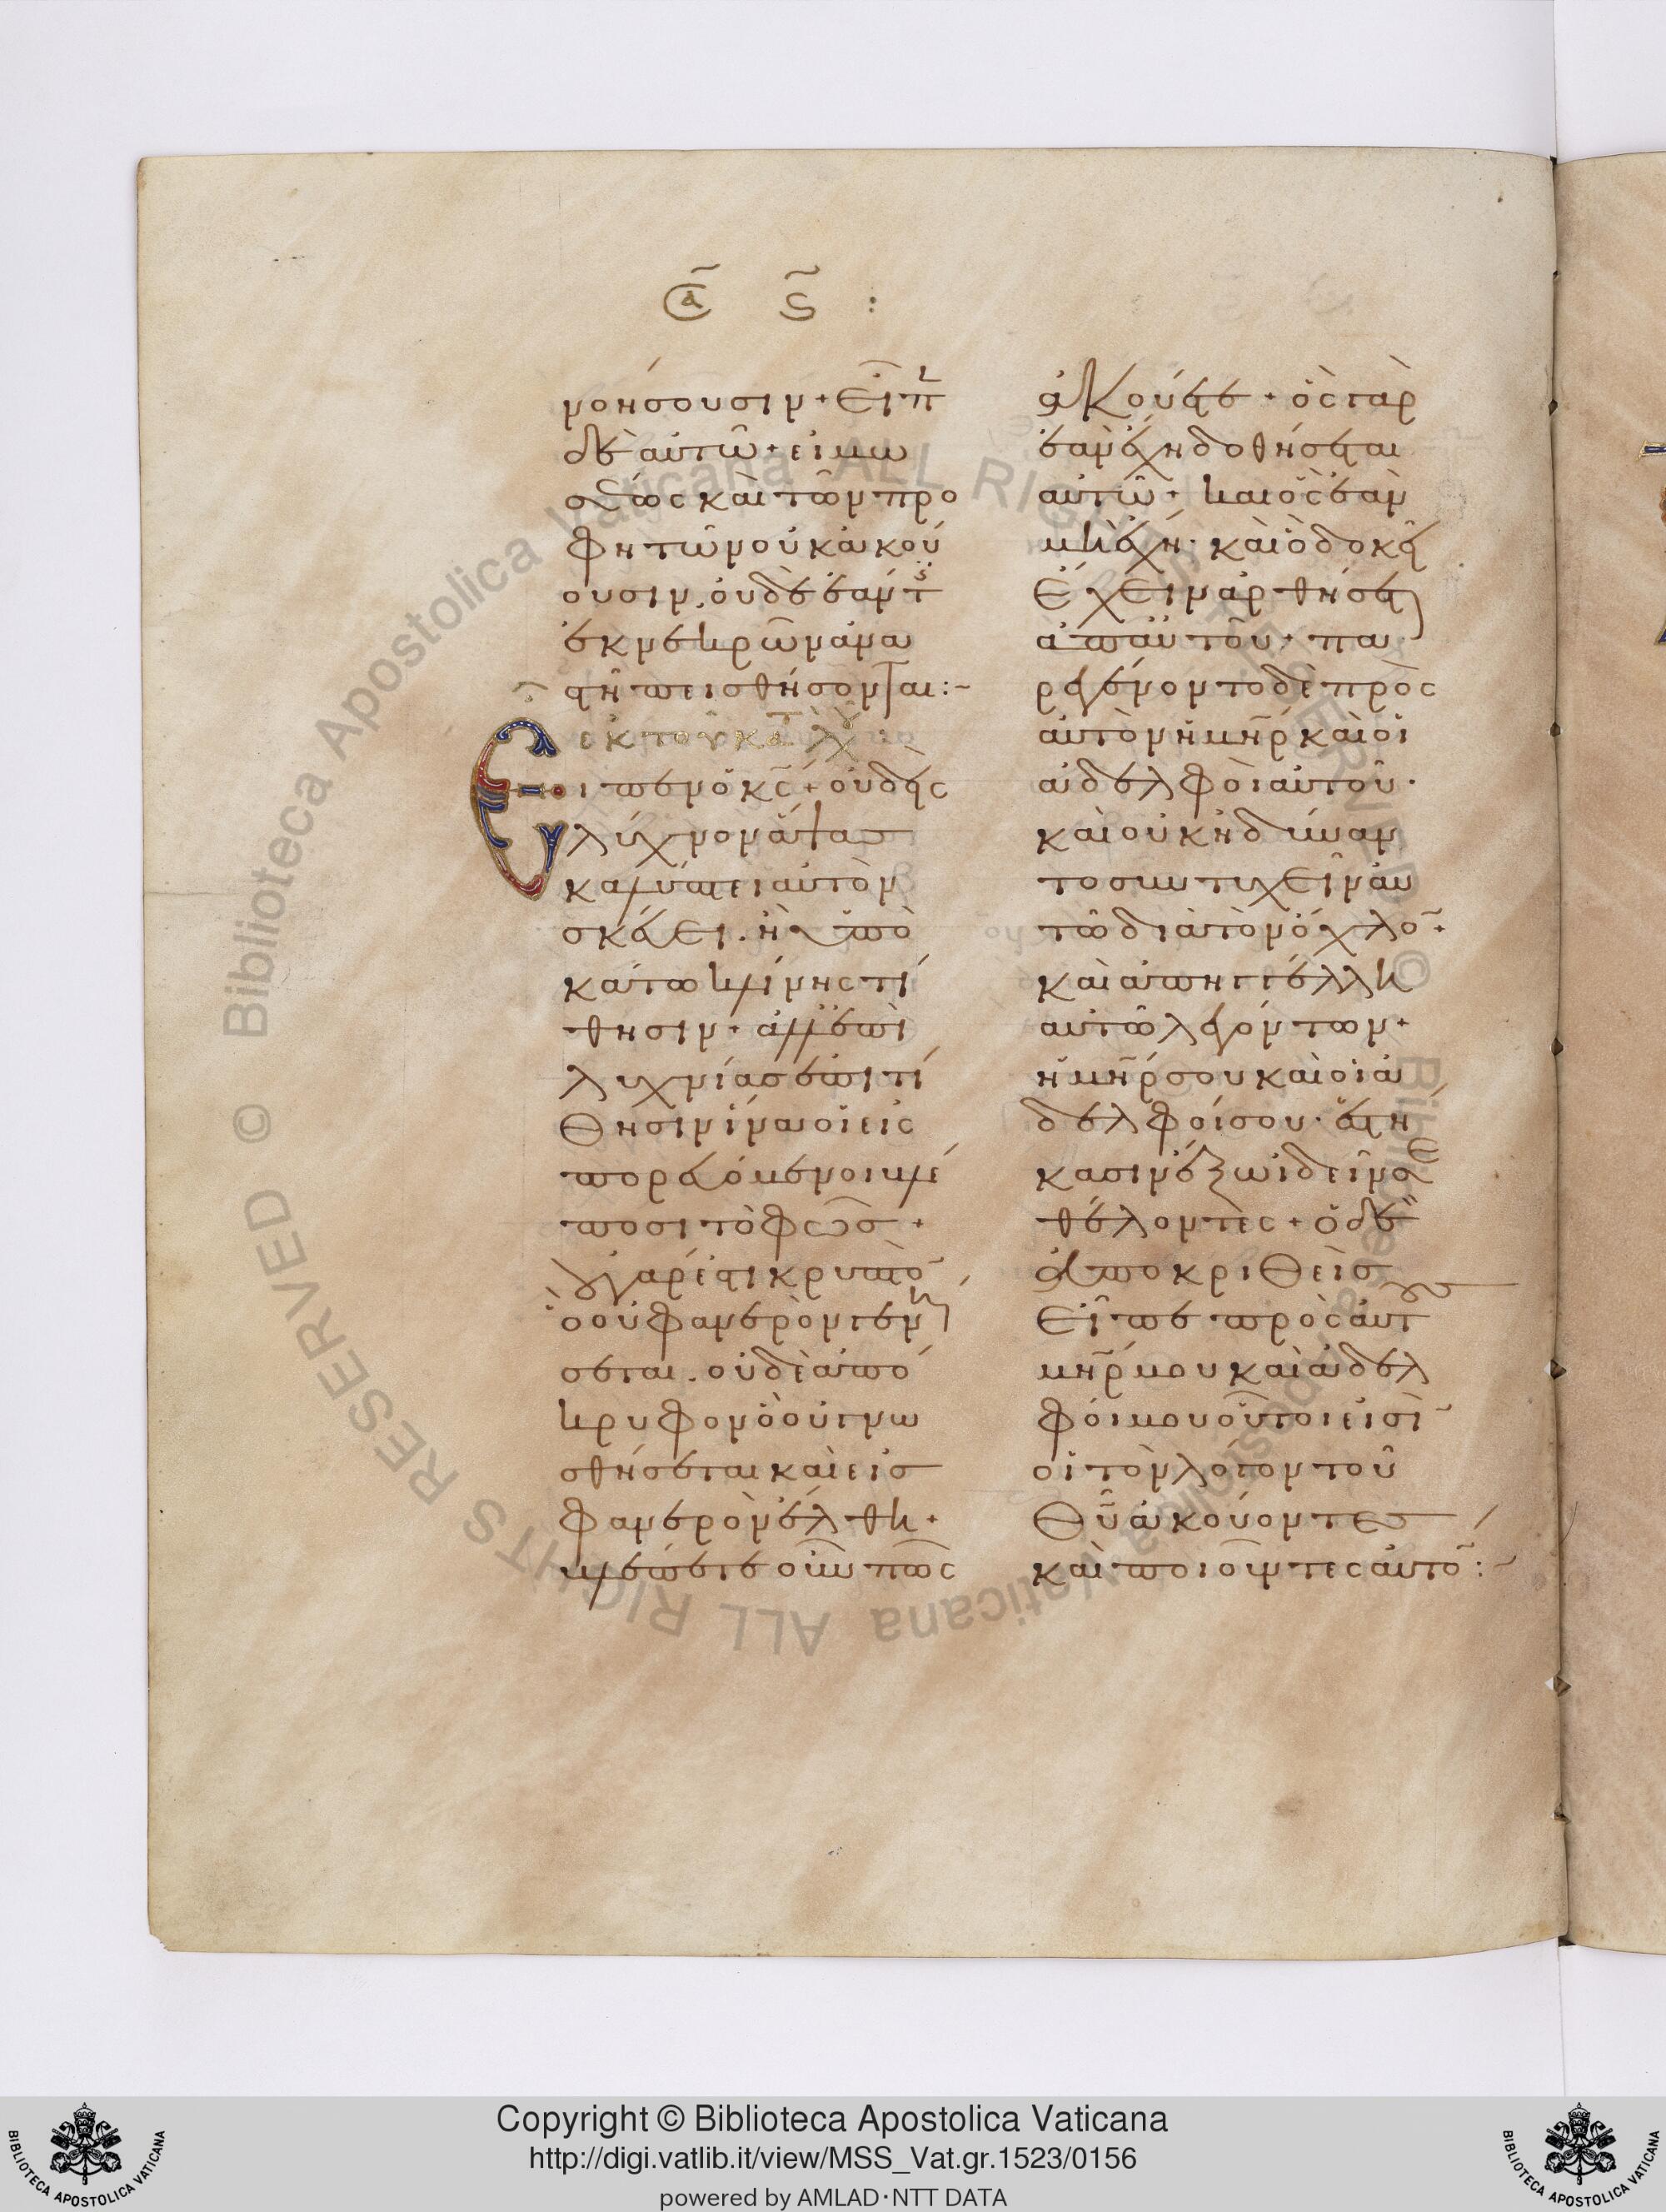 σα ς :
νοήσουσιν + εἶπ
δὲ αὐτῶ + εἰ μω
σέως καὶ τῶν προ
φητῶν οὐκ ἀκού
ουσιν, οὐδὲ ἐάν τ
ἐκ νεκρῶν ἀνα
στῆ πεισθήσονται :~
ἐκ τοῦ κατ λουκ
Εἶπεν ὁ κς + οὐδεὶς
λύχνον ἅψας
καλύπτει αὐτὸν
σκεύει. ἢ ὑπο
κάτω κλίνης τί
θησιν · ἀλλ' ἐπὶ
λυχνίας ἐπιτί
θησιν ἵνα οἱ εἰς
πορευόμενοι βλέ
πωσι τὸ φῶς +
οὐ γάρ ἐστι κρυπτὸ
ὃ οὐ φανερὸν γενή
σεται. οὐδὲ ἀπό
κρυφον ὃ οὐ γνω
σθήσεται καὶ εἰς
φανερὸν ἔλθη +
βλέπετε οὖν πῶς
ἀκούετε + ὃς γὰρ
ἐὰν ἔχη δοθήσεται
αὐτῶ + καὶ ὃς ἐὰν
μὴ ἔχη · καὶ ὃ δοκεῖ
ἔχειν ἀρθήσεται
ἀπ' αὐτοῦ + πα
ρεγένοντο δὲ πρὸς
αὐτὸν ἡ μηρ καὶ οἱ
ἀδελφοὶ αὐτοῦ ·
καὶ οὐκ ἠδύναν
το συντυχεῖν αὐ
τῶ διὰ τὸν ὄχλο +
καὶ ἀπηγγέλλη
αὐτῶ λεγόντων +
ἡ μηρ σου καὶ οἱ ἀ
δελφοί σου · ἑστή
κασιν ἔξω ἰδεῖν σε
θέλοντες + ὁ δὲ
ἀποκριθεὶς
εἶπε πρὸς αὐτούς
μηρ μου καὶ ἀδελ
φοί μου οὗτοι εἰσὶ
οἱ τὸν λόγον τοῦ
θυ ἀκούοντες
καὶ ποιοῦντες αὐτὸ :~
Copyright © Biblioteca Apostolica Vaticana
http://digi.vatlib.it/view/MSS_Vat.gr.1523/0156
powered by AMLAD·NTT DATA